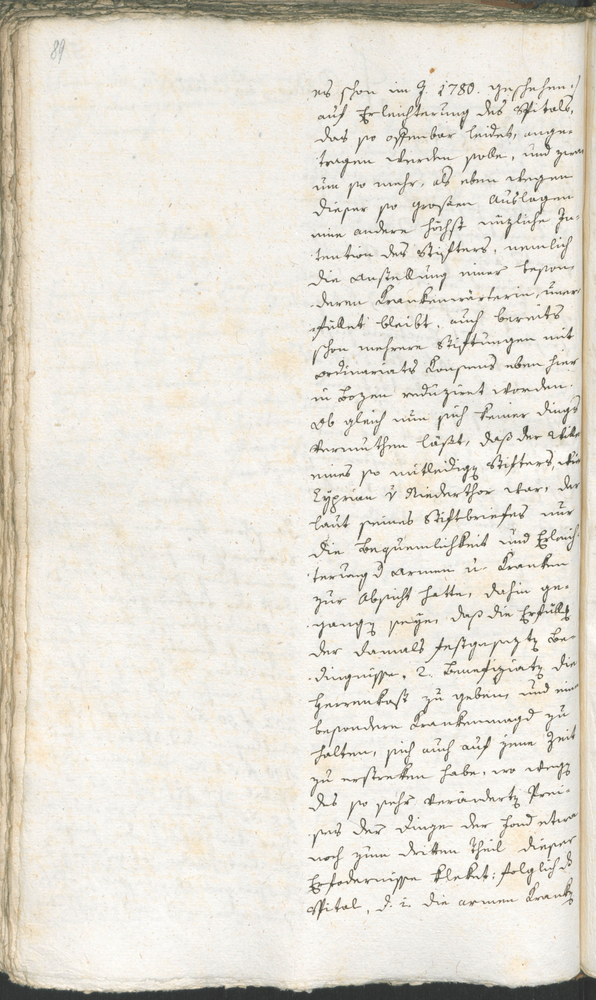 89
es schon im J. 1780. geschehen,
auf Erleichterung des Spitals,
das so offenbar leidet, ange-
tragen werden solle, und zwar
um so mehr, als eben wegen
dieser so grossen Auslagen
eine andere höchst nüzliche In-
tention des Stifters, nemlich
die Anstellung einer beson-
deren Krankenwärterin, uner-
füllet bleibt, auch bereits
schon mehrere Stiftungen mit
Ordinariats Konsens eben hier
in Bozen reduziret worden.
Ob gleich nun sich keiner dings
vermuthen läßt, daß der Wille
eines so mitleidigen Stifters, wie
Zyprian v Niederthor war, der
laut seines Stiftbriefes nur
die Bequemlichkeit und Erleich-
terung d Armen u. Kranken
zur Absicht hatte, dahin ge-
gangen seye, daß die Erfüllg
der damals festgesezten Be-
dingnisse, 2. Benefiziaten die
Herrenkost zu geben, und eine
besondere Krankenmagd zu
halten, sich auch auf jene Zeit
zu erstreken habe, wo wegen
des so sehr veränderten Prei-
ses der Dinge der Fond etwa
noch zum dritten Theil dieser
Erfodernisse kleket; folglich ds
Spital, d. i. die armen Kranken